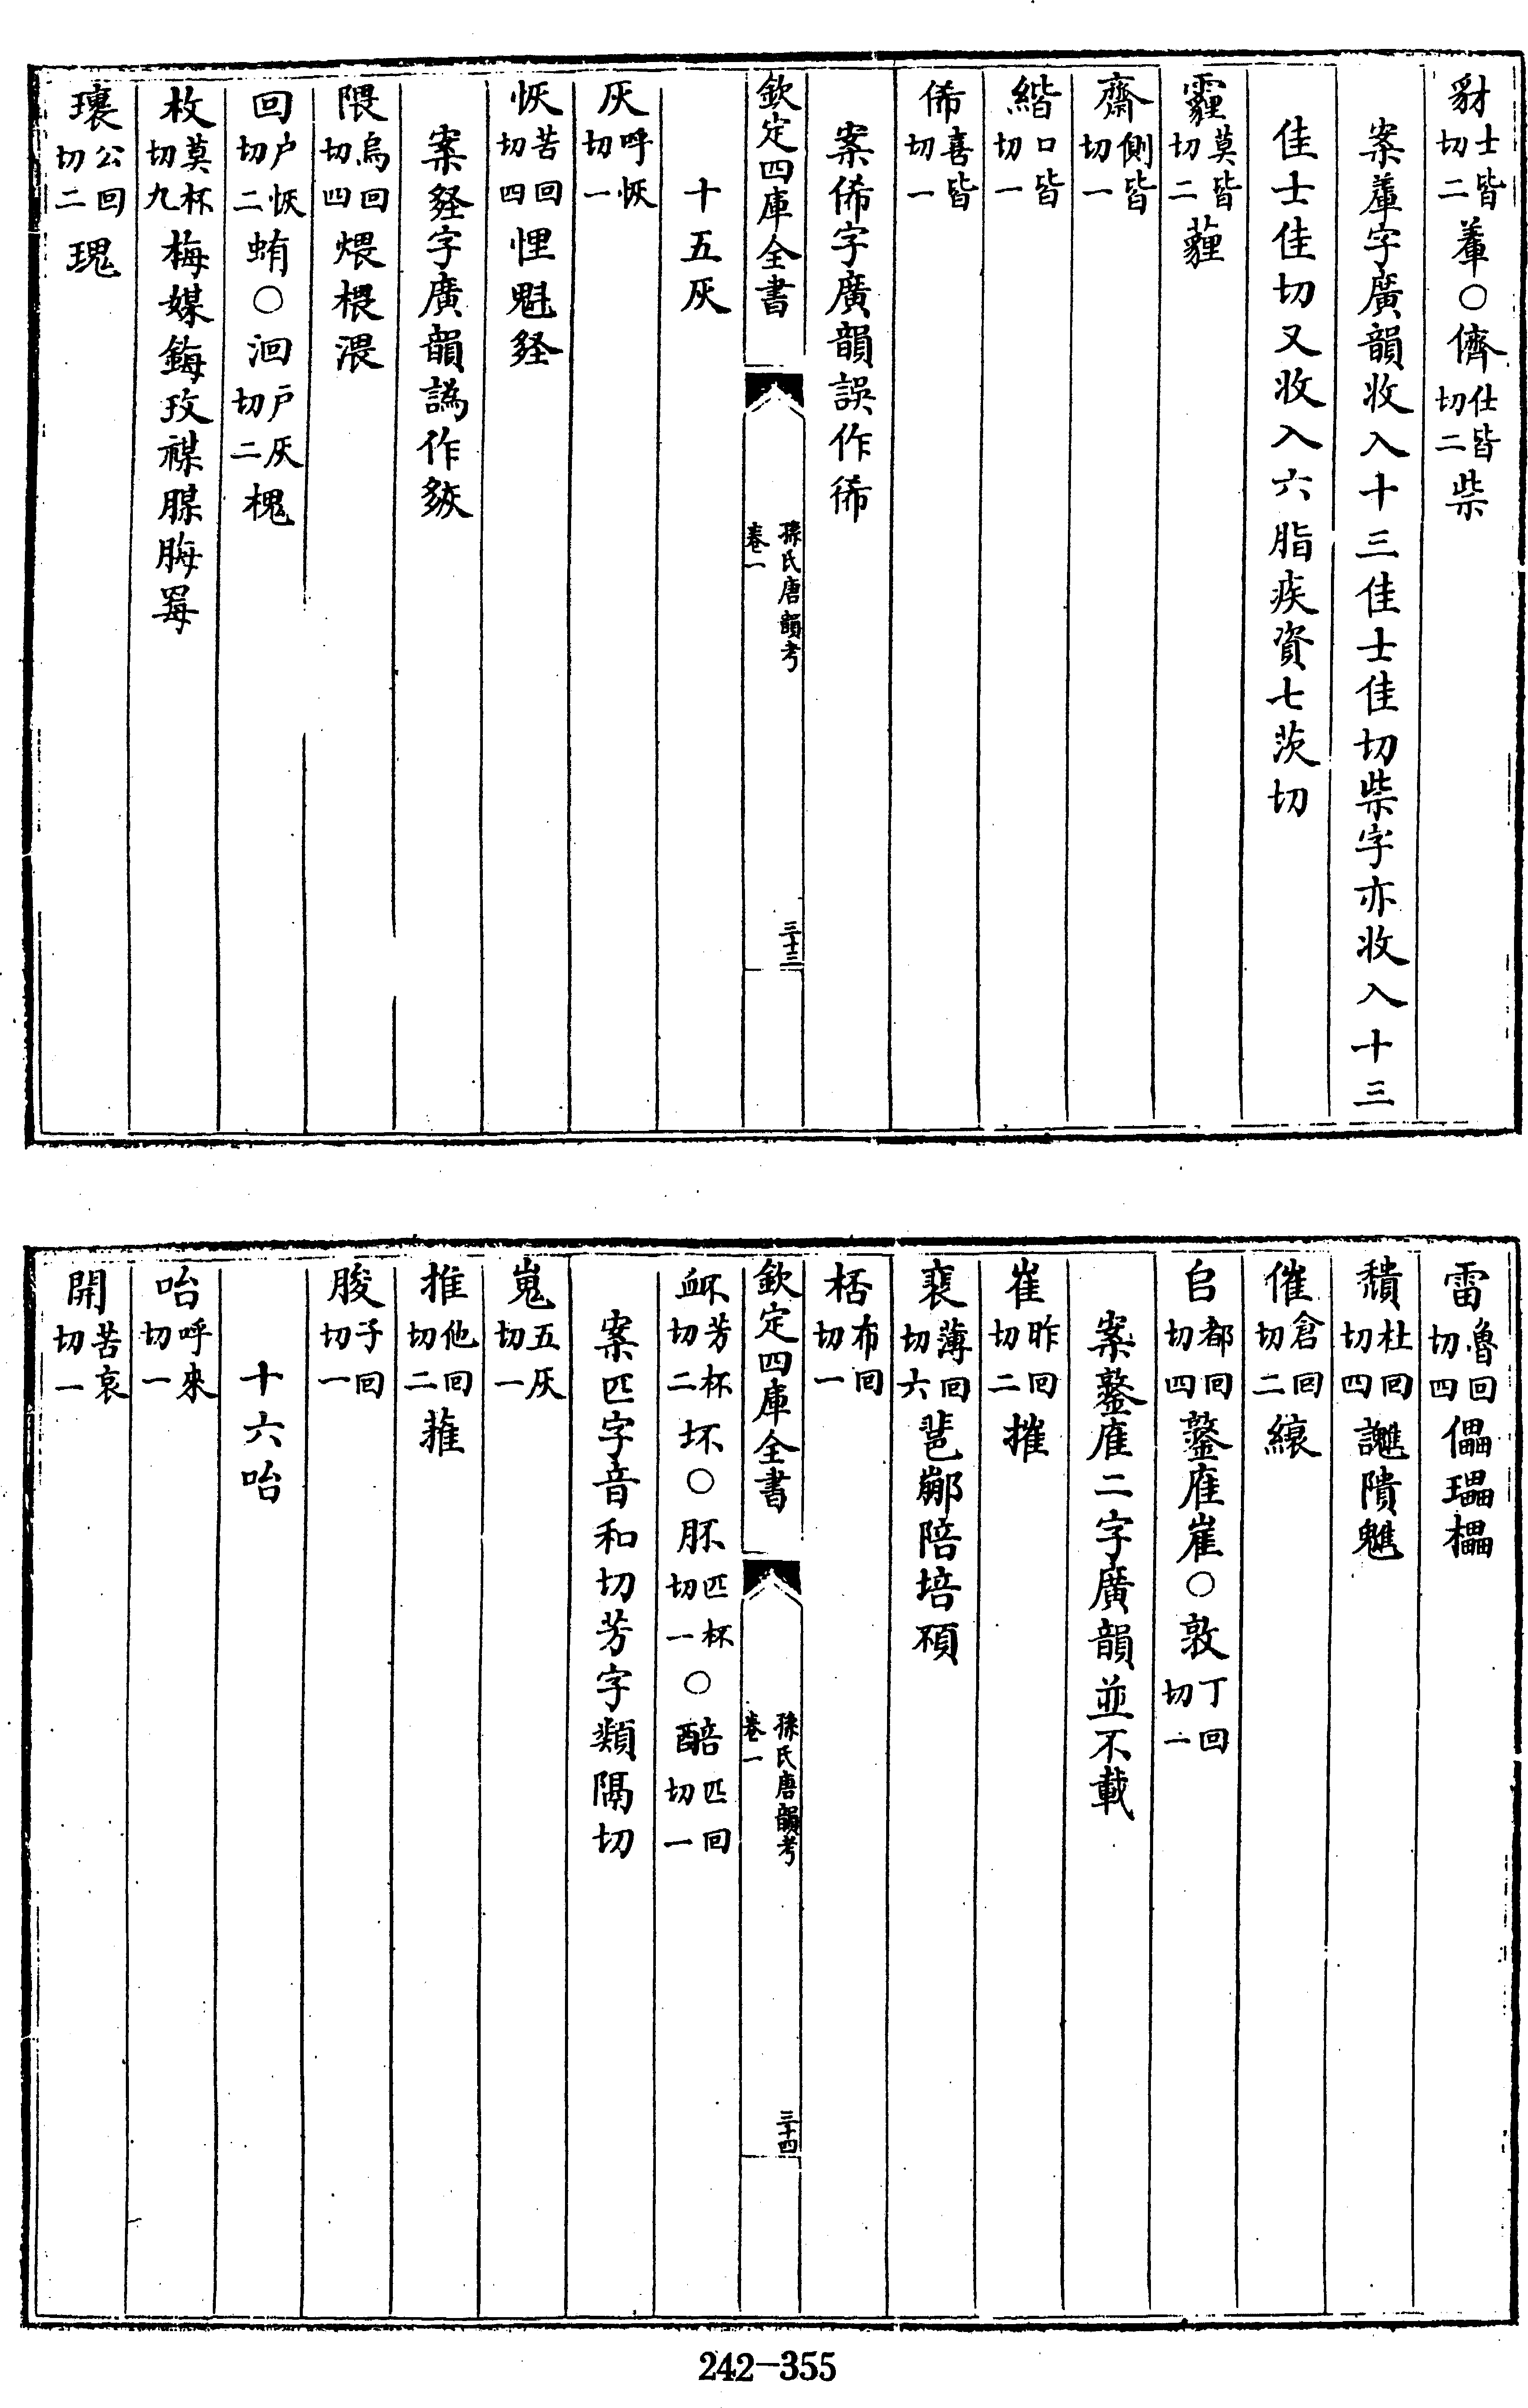 豺士皆切二䡨〇儕仕皆切二祡
案䡨字廣韻收入十三佳士佳切祡字亦收入十三
佳士佳切又收入六脂疾資七茨切
霾莫皆切二薶
齋側皆切一
緒口皆切一
俙喜皆切一
案俙字廣韻誤作徟
欽定四庫全書
孫氏唐韻考
卷一
三十三
十五灰
灰呼恢切一
恢苦回切四悝魁
案字廣韻譌作
隈烏回切四煨椳渨
回户恢切二蛕〇洄户灰切二槐
枚莫杯切九梅媒鋂玫禖腜脢罞
瓌公回切二瑰
雷魯回切四儡瓃櫑
穨杜回切四隤魋
催倉回切二縗
𠂤都回切四崔〇敦丁回切一
案二字廣韻並不載
崔昨回切二摧
裴薄回切六陪培
桮布回切一
欽定四庫全書
孫氏唐韻考
卷一
三十四
衃芳杯切二坏〇肧匹杯切一〇醅匹回切一
案匹字音和切芳字類隔切
嵬五灰切一
推他回切二蓷
朘子回切一
十六咍
咍呼來切一
開苦哀切一
242-355